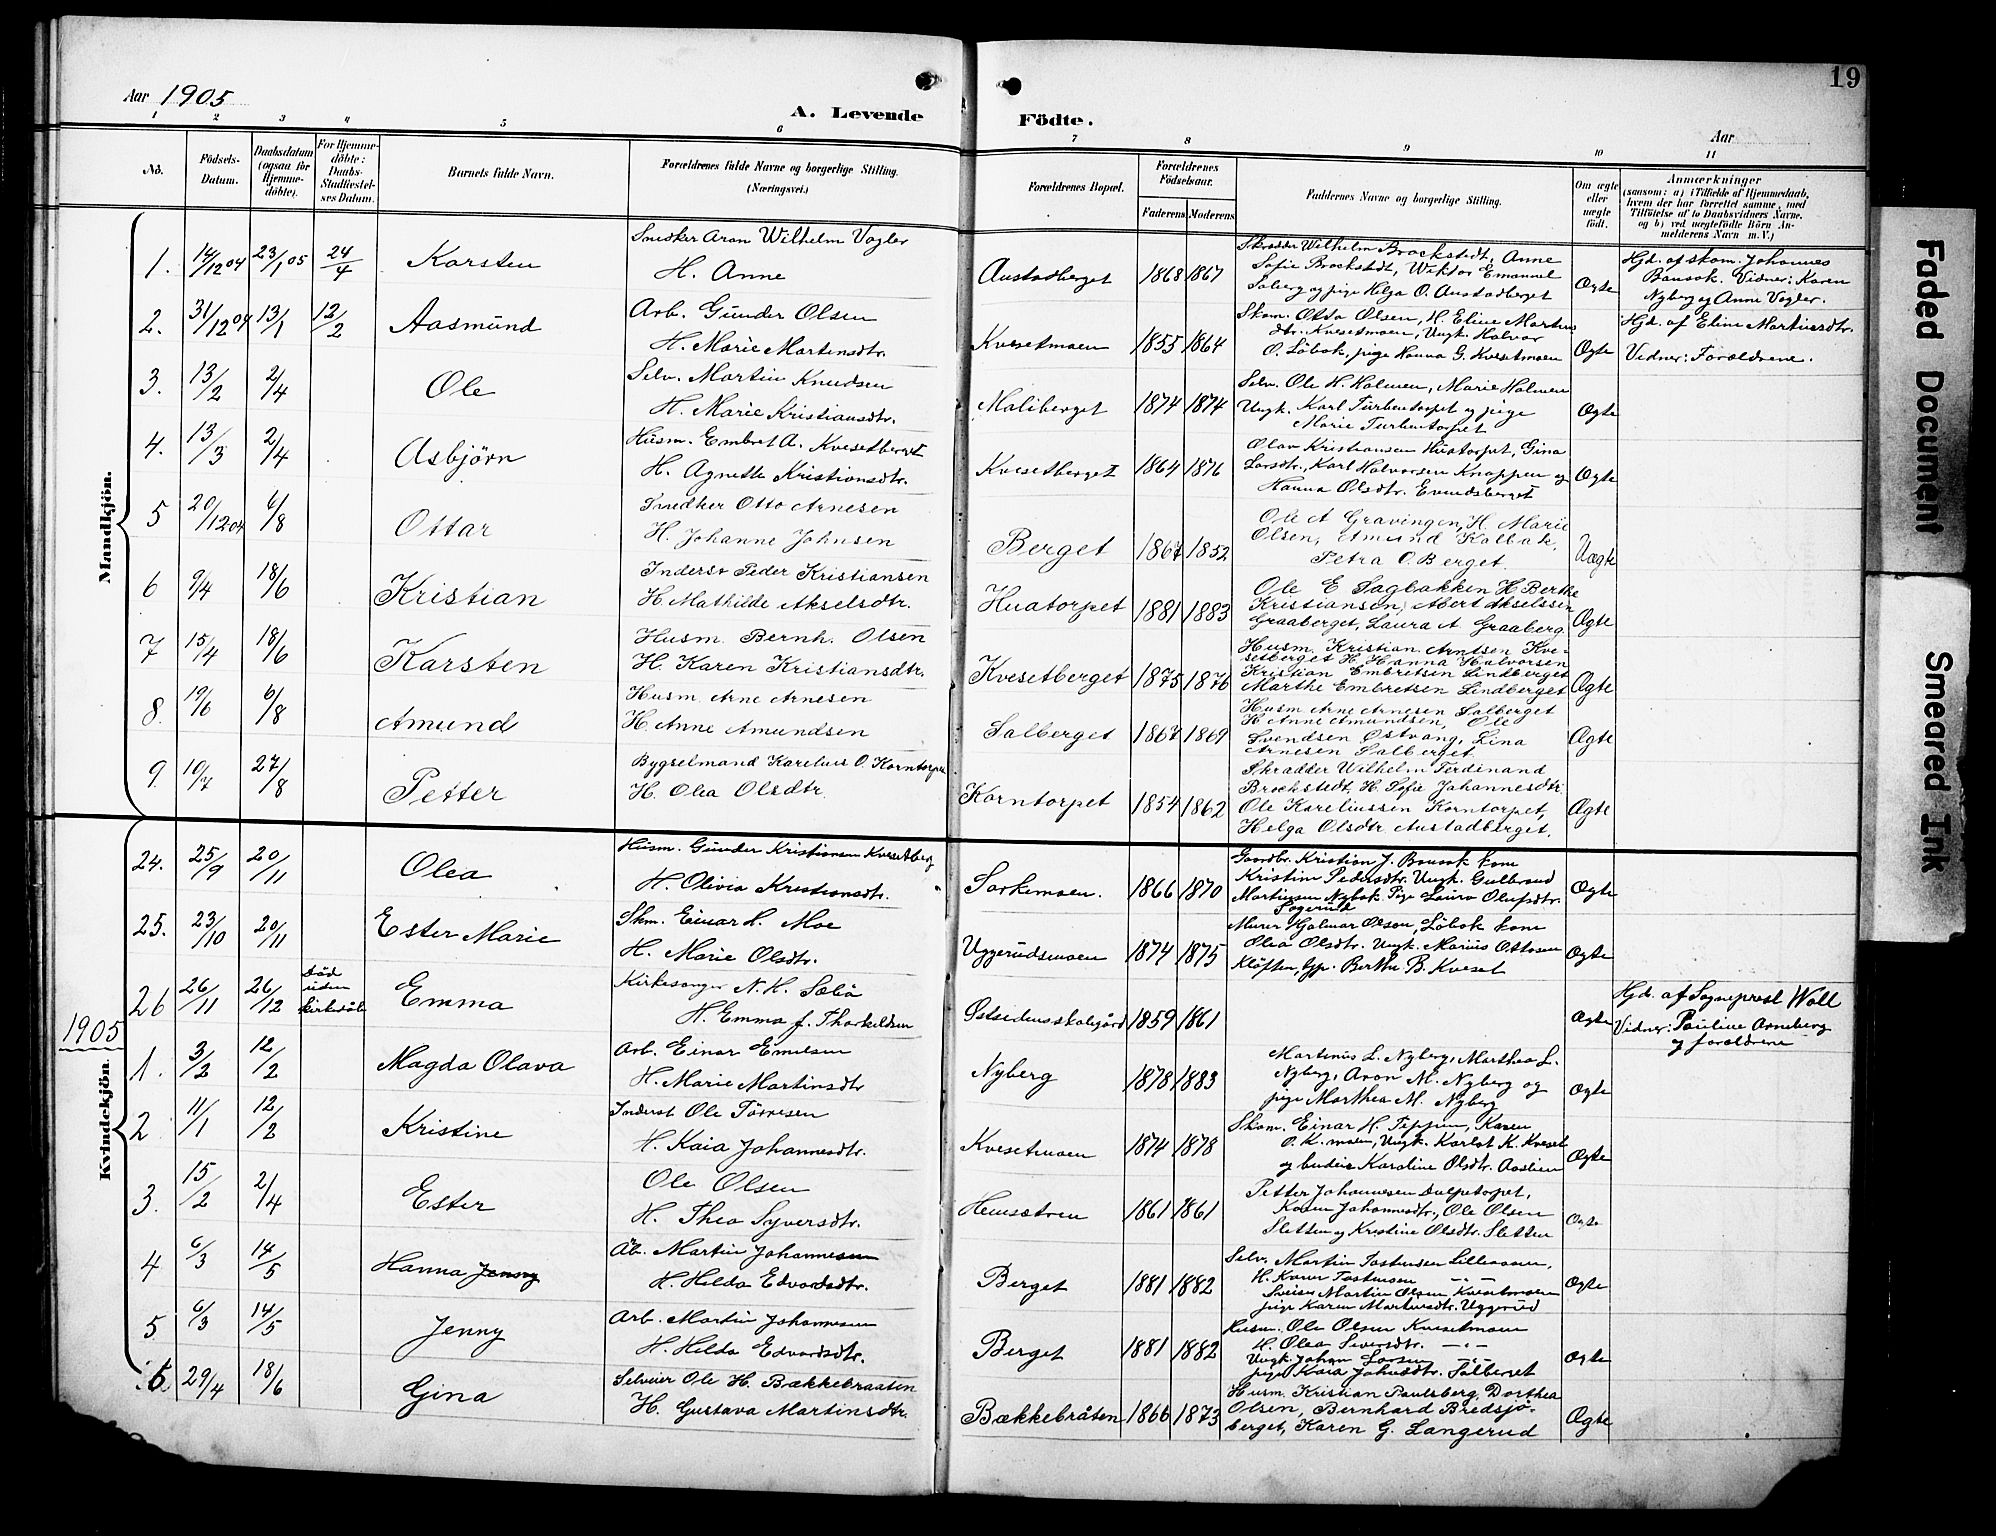 19
Aar 1905
A. Levende Födte.
Aar
1 2 3 4 5 6 7 8 9 10 11
No.
Födsels-Datum.
Daabsdatum (ogsaa for Hjemme-döbte).
For Hjemme-döbte: Daabs-Stadfæstel-ses Datum.
Barnets fulde Navn.
Forældrenes fulde Navne og borgerlige Stilling. (Næringsvei.)
Forældrenes Bopæl.
Forældrenes Födselsaar.
Faderens Moderens
Faddernes Navne og borgerlige Stilling.
Om ægte eller uægte födt.
Anmærkninger
(saasom: a) i Tilfælde af Hjemmedaab,
hvem der har forrettet samme, med
Tilföielse af to Daabsvidners Navne.
og b) ved uægtefödte Börn An-
melderens Navn m. V.)
Mandkjön.
1. 14/12 04 23/1 05 24/4 Karsten
Snedker Aron Wilhelm Vogler
H. Anne
Austadberget 1868 1867
Skrædder Wilhelm Brockstedt, Anne
Sofie Brockstedt, Wiktor Emanuel
Soberg og pige Helga O. Austadberget
Ægte
Hjd. af skom. Johannes
Bansok. Vidner: Karen
Nyberg og Anne Vogler.
2. 31/12 04 13/1 12/2 Aasmünd
Arb. Günder Olsen
H. Marie Martinsdtr.
Kvesetmoen 1855 1864
Skom. Otto Olsen, H. Eline Martins
dtr. Kvesetmoen, Ungk. Halvor
O. Löbak, pige Hanna G. Kvesetmoen
Ægte
Hjd. af Eline Martinsdtr.
Vidner: Forældrene.
3. 13/2 2/4 Ole
Selv. Martin Knudsen
H. Marie Kristiansdtr.
Maliberget 1874 1874
Selv. Ole H. Holmen, Marie Holmen
Ungk. Karl Turbentorpet og pige
Marie Turbentorpet
Ægte
4. 13/3 2/4 Asbjørn
Husm. Embret A. Kvesetberget
H. Agnethe Kristiansdtr.
Kvesetberget 1864 1876
Olav Kristiansen Huatorpet, Gina
Larsdtr., Karl Halvorsen Knappen og
Hanna Olsdtr. Evundsberget
Ægte
5 20/12 04 6/8 Ottar
Snedker Otto Arnesen
H. Johanne Johnsen
Berget 1867 1852
Ole A Gravingen, H. Marie
Olsen, Amund Kalbak,
Petra O. Berget.
Uægte
6 9/4 18/6 Kristian
Inderst Peder Kristiansen
H. Mathilde Akselsdtr.
Huatorpet 1881 1883
Ole E Sagbakken H Berthe
Kristiansen, Abert Akselssen
Graaberget, Laura A Graaberg.
Ægte
7 15/4 18/6 Karsten
Husm. Bernh. Olsen
H. Karen Kristiansdtr.
Kvesetberget 1875 1876
Husm. Kristian Arntsen Kve-
setberget H. Hanna Halvorsen
Kristian Embretsen Lindberget
Marthe Embretsen Lindberget
Ægte
8. 19/6 6/8 Amund
Husm Arne Arnesen
H. Anne Amundsen
Salberget 1867 1869
Husm Arne Arnesen Salberget
H. Anne Amundsen, Ole
Svendsen Østvang, Lina
Arnesen Salberget
Ægte
9. 10/7 27/8 Petter
Bygselmand Karelius O. Korntorpet
H. Olea Olsdtr.
Korntorpet 1854 1862
Skrædder Wilhelm Ferdinand
Brockstedt, H. Sofie Johannesdtr
Ole Kareliussen Korntorpet,
Helga Olsdtr Austadberget.
Ægte
24. 25/9 20/11 Olea
Husm. Günder Kristiansen Kvesetberg
H. Olivia Kristiansdtr.
Sorkemoen. 1866 1870
Gaardbr. Kristian J. Bansok kone
Kristine Pedersdtr. Ungk. Gulbrand
Martinsen Nybak Pige Laura Olufsdtr.
Sagerud
Ægte
25. 23/10 20/11 Ester Marie
Skm. Einar H. Moe
H. Marie Olsdtr.
Uggerudsmoen 1874 1875
Murer Hjalmar Olsen, Löbak kone
Olea Olsdtr. Ungk. Marius Ottosen
Kløften, Gp. Berthe B. Kveset
Ægte
26 26/11 26/12 död uden kirkedåb Emma
Kirkesanger N. H. Sæbö
H. Emma f. Thorkildsen
Østsidensskolegård 1859 1861
Ægte
Hjd. af Sogneprest Woll
Vidner: Pauline Arneberg
og forældrene
1905
Kvindekjön.
1. 3/2 12/2 Magda Olava
Arb. Einar Emilsen
H. Marie Martinsdtr
Nyberg 1878 1883
Martinus L. Nyberg, Marthea L.
Nyberg, Aron M. Nyberg og
pige Marthea M. Nyberg
Ægte
2 11/1 12/2 Kristine
Inderst Ole Tørresen
H. Kaia Johannesdtr.
Kvesetmoen 1874 1878
Skom. Einar H. Teppen, Karen
O. K. moen, Ungk. Karlot K. Kveset
og budeie Karoline Olsdtr. Aaslien
Ægte
3. 15/2 2/4 Ester
Ole Olsen
H. Thea Syversdtr.
Hemsætren 1861 1861
Petter Johannesen Dulpetorpet,
Karen Johannesdtr., Ole Olsen
Sletten og Kristine Olsdtr. Sletten
Ægte
4 6/3 14/5 Hanna Jenny
Ab. Martin Johannesen
H. Hilda Edvardsdtr.
Berget 1881 1882
Selv. Martin Tostensen Lillemoen,
H. Karen Tostensen —„—
Sveiser Martin Olsen Kvesetmoen
pige Karen Martinsdtr. Uggerud
Ægte
5 6/3 14/5 Jenny
Arb. Martin Johannesen
H. Hilda Edvardsdtr.
Berget 1881 1882
Husm. Ole Olsen Kvesetmoen
H. Olea Siversdtr. —„—
Ungk. Johan Larsen —„—
pige Kaia Johnsdtr. Salberget
Ægte
6 29/4 18/6 Gina
Selveier Ole H. Bækkebraaten
H. Gustava Martinsdtr.
Bækkebråten 1866 1873
Husm. Kristian Paulsberg, Dorthea
Olsen, Bernhard Bredsjö-
berget, Karen G. Langerud
Ægte
Faded Document
Smeared Ink